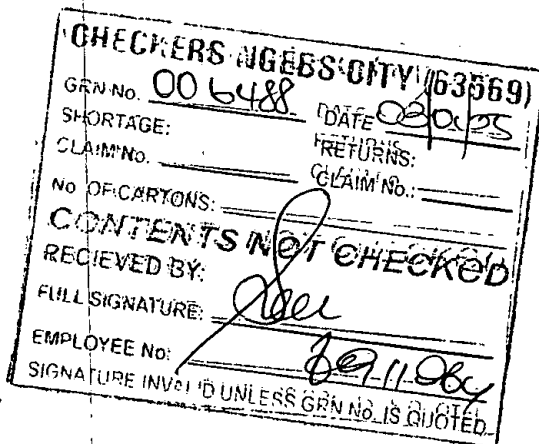 CHECKERS NGEBS CITY (63569)
GRN No. 006488 DATE
SHORTAGE: RETURNS:
CLAIM No. CLAIM No.:
No OF CARTONS:
CONTENTS NOT CHECKED
RECIEVED BY:
FULL SIGNATURE:
EMPLOYEE No:
SIGNATURE INVALID UNLESS GRN No. IS QUOTED